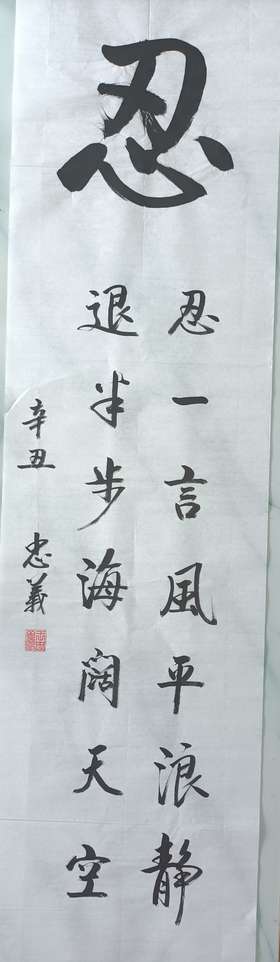 忍
忍一言风平浪静
退半步海阔天空
辛丑 忠義